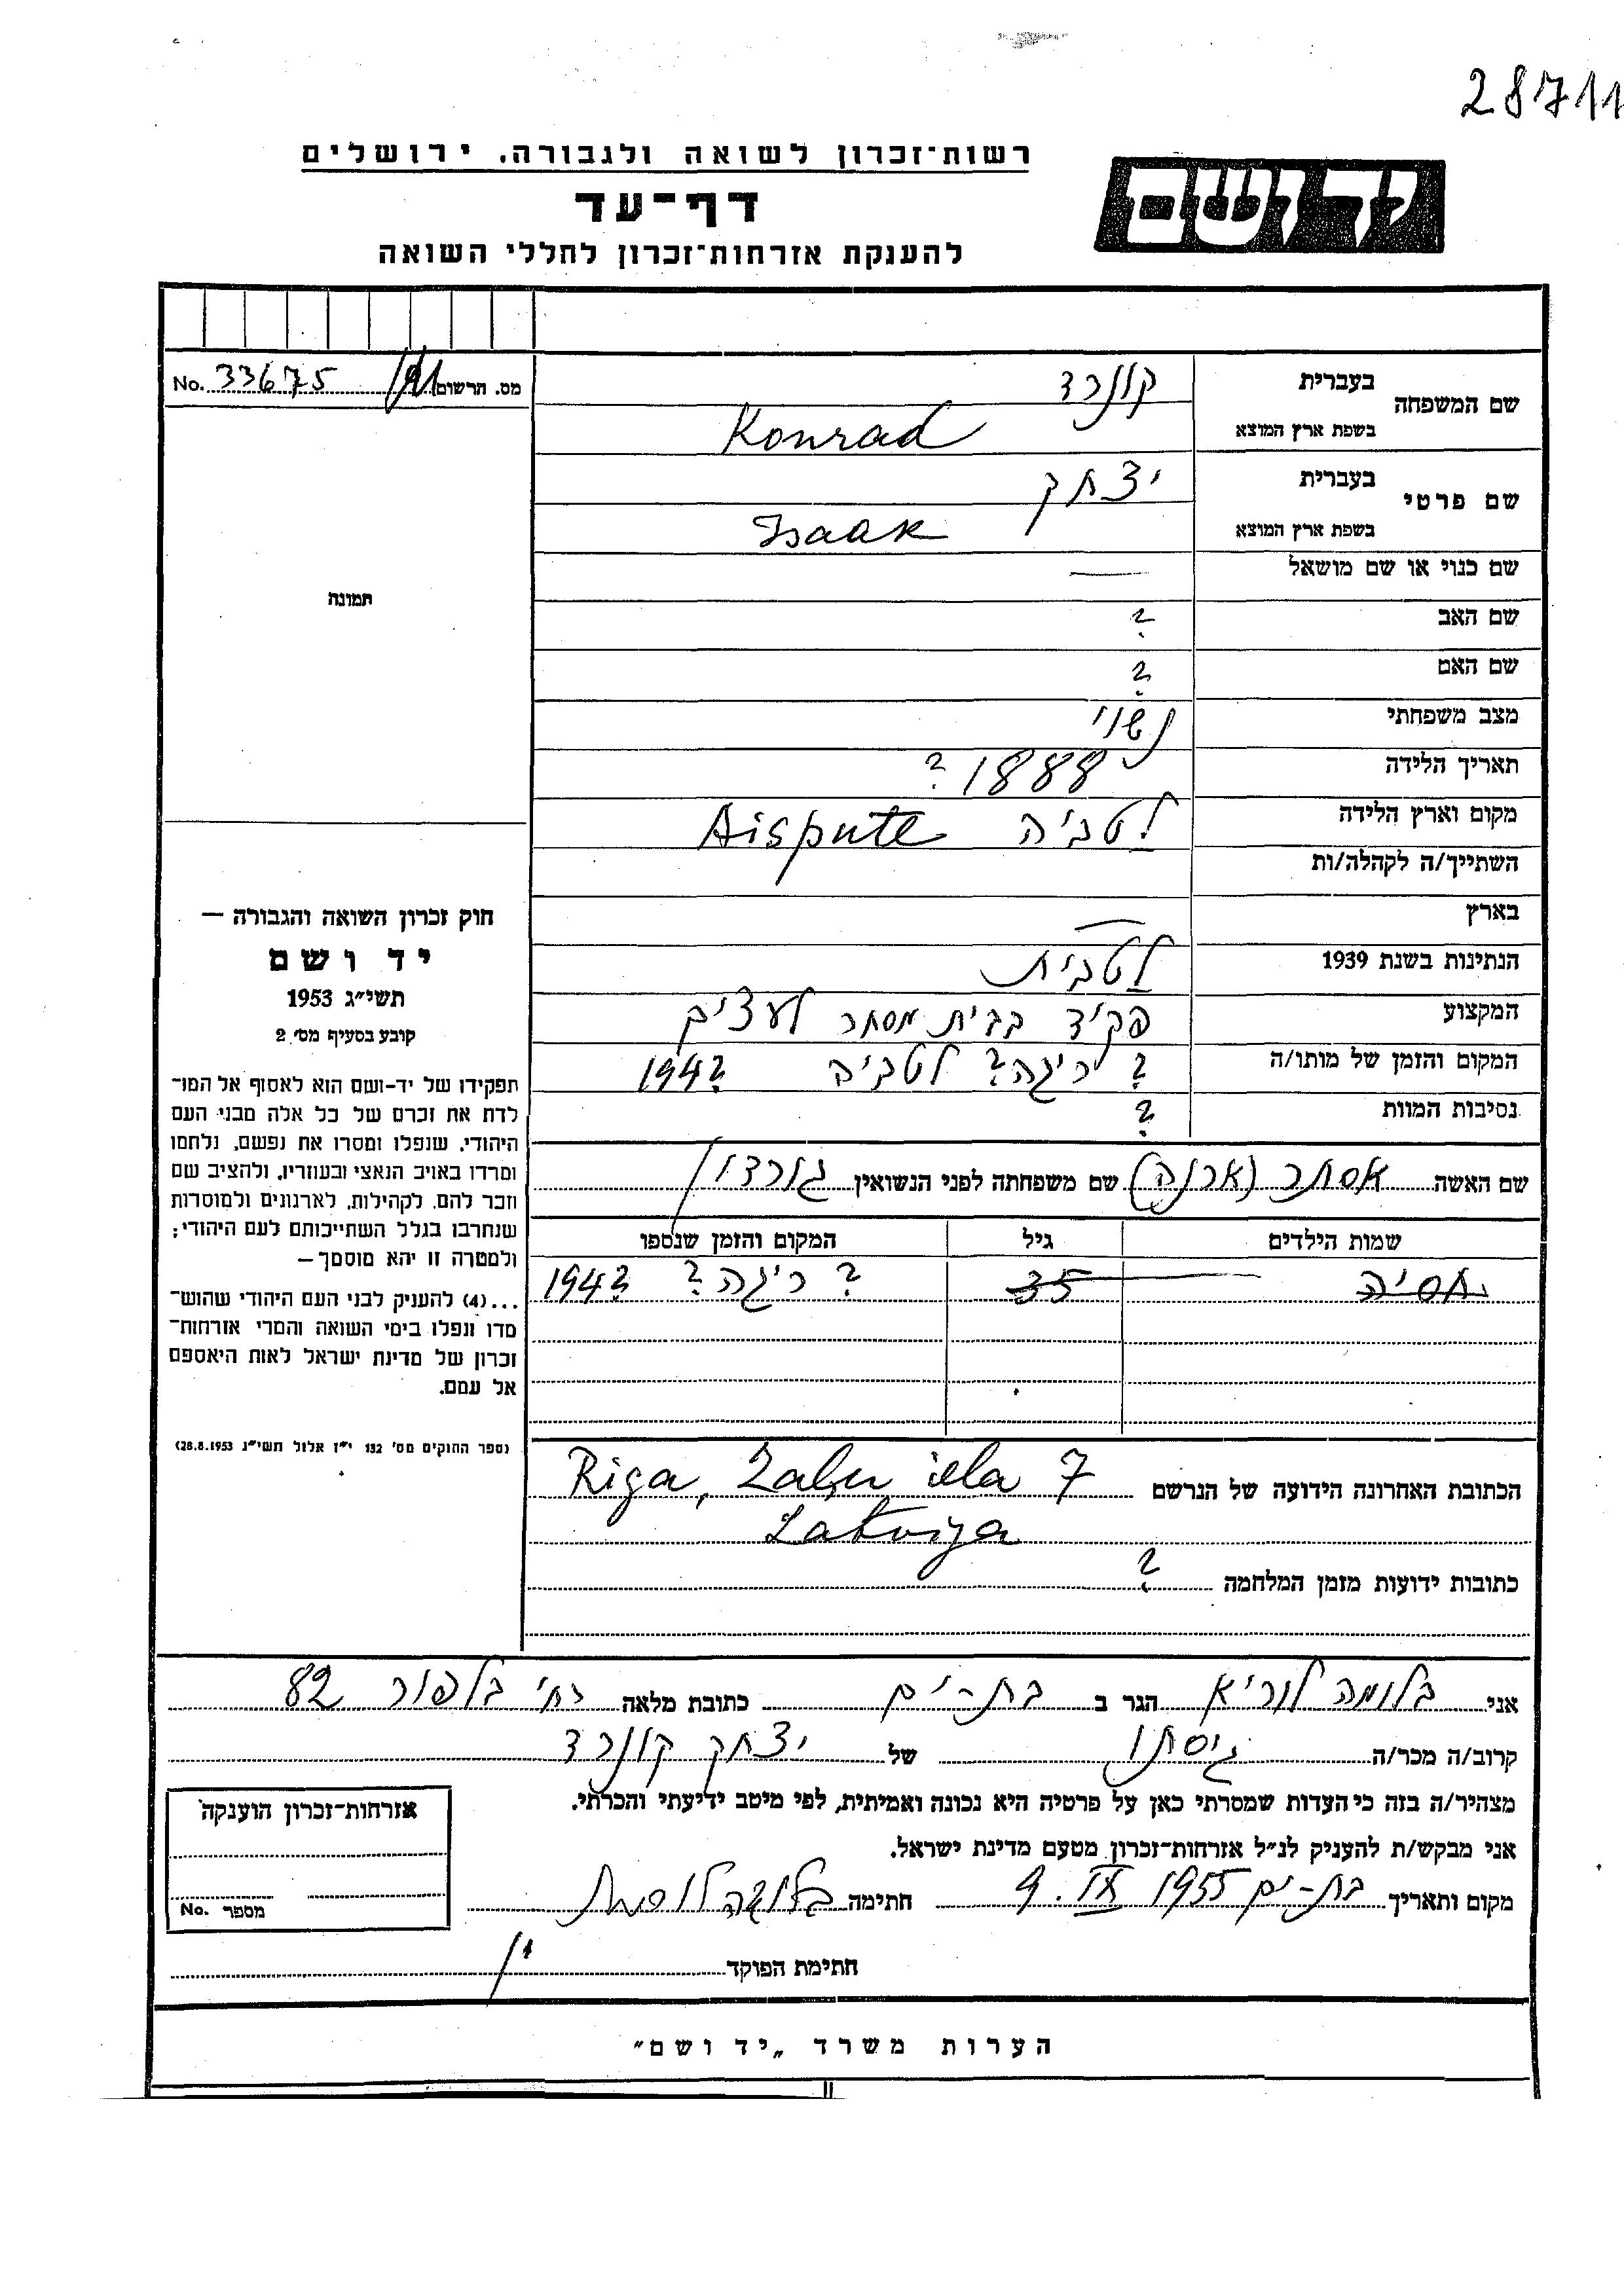 28711
רשות־זכרון לשואה ולגבורה. ירושלים
ידושם
דף־עד
להענקת אזרחות־זכרון לחללי השואה
מס. הרשום 33675 No.
שם המשפחה בעברית קונרד
בשפת ארץ המוצא Konrad
שם פרטי בעברית יצחק
בשפת ארץ המוצא Isaak
שם כנוי או שם מושאל —
שם האב ?
שם האם ?
מצב משפחתי נשוי
תאריך הלידה 1888 ?
מקום וארץ הלידה לטביה Aispute
השתייך/ה לקהלה/ות
בארץ —
הנתינות בשנת 1939 לטבית
המקצוע פקיד בבית מסחר לעצים
המקום והזמן של מותו/ה ? ריגה? לטביה 194?
נסיבות המוות ?
שם האשה אסתר (ארנה) שם משפחתה לפני הנשואין גורדון
שמות הילדים גיל המקום והזמן שנספו
אסיה 35 ? ריגה? 194?
הכתובת האחרונה הידועה של הנרשם Riga, Zaļu iela 7
Latvija
כתובות ידועות מזמן המלחמה ?
תמונה
חוק זכרון השואה והגבורה —
יד ושם
תשי״ג 1953
קובע בסעיף מס׳ 2
תפקידו של יד-ושם הוא לאסוף אל המו־
לדת את זכרם של כל אלה מבני העם
היהודי, שנפלו ומסרו את נפשם, נלחמו
ומרדו באויב הנאצי ובעוזריו, ולהציב שם
וזכר להם, לקהילות, לארגונים ולמוסדות
שנחרבו בגלל השתייכותם לעם היהודי;
ולמטרה זו יהא מוסמך —
...(4) להעניק לבני העם היהודי שהוש־
מדו ונפלו בימי השואה והמרי אזרחות־
זכרון של מדינת ישראל לאות היאספם
אל עמם.
(ספר החוקים מס׳ 132 י״ז אלול תשי״ג 28.8.1953)
אני בלומה לוריא הגר ב בת-ים כתובת מלאה רח׳ בלפור 82
קרוב/ה מכר/ה גיסתו של יצחק קונרד
מצהיר/ה בזה כי העדות שמסרתי כאן על פרטיה היא נכונה ואמיתית, לפי מיטב ידיעתי והכרתי.
אני מבקש/ת להעניק לנ״ל אזרחות־זכרון מטעם מדינת ישראל.
מקום ותאריך בת-ים 9. IX 1955 חתימה
חתימת הפוקד
אזרחות־זכרון הוענקה
מספר No.
הערות משרד „יד ושם״